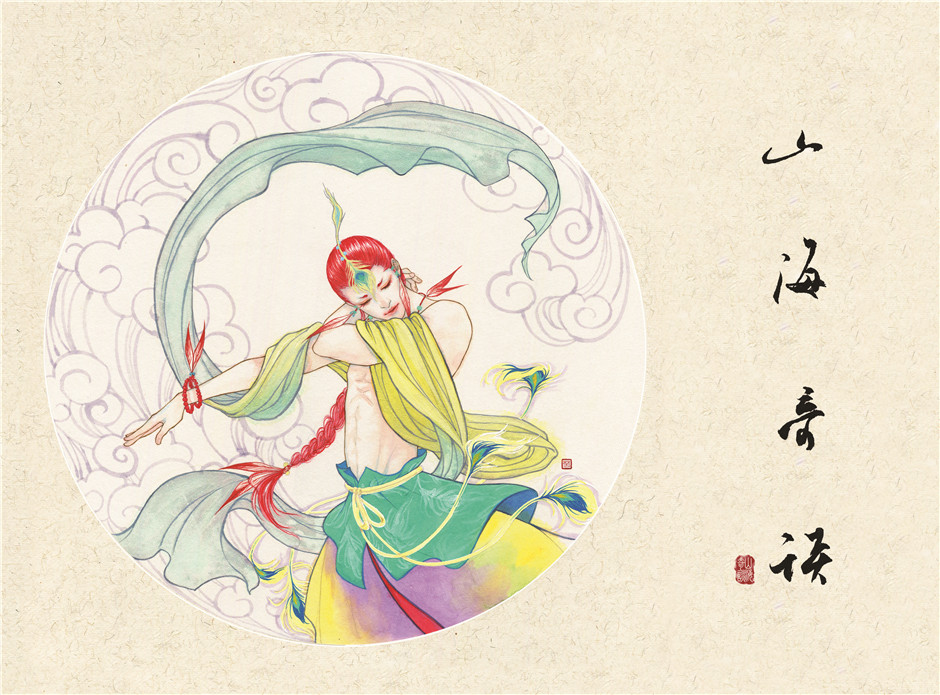 山海奇谈